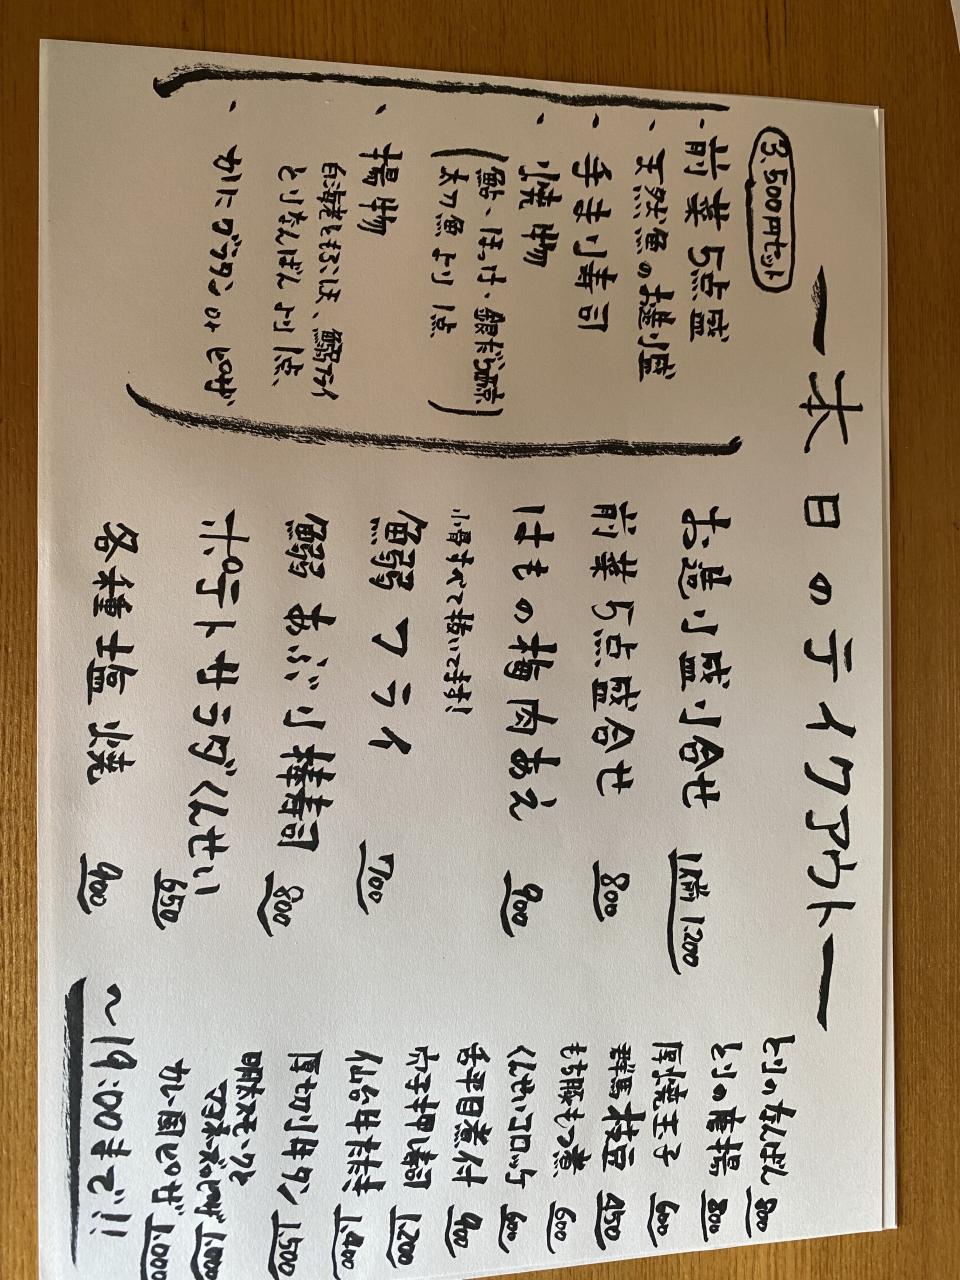 ー 本日のテイクアウト ー
3,500円セット
・前菜5点盛
・天然魚のお造り盛
・手まり寿司
・焼物
(鮎・ほっけ・銀だら西京
太刀魚より1点)
・揚物
白海老と
とりなんばんより1点、
・カニグラタン or ピザ
お造り盛り合せ 1人前 1,200
前菜5点盛合せ 800
はもの梅肉あえ 900
小骨すべて抜いてます!
鰯フライ 700
鰯あぶり棒寿司 800
ポテトサラダくんせい 650
各種塩焼 900
とりのなんばん 800
とりの唐揚 800
厚焼玉子 600
群馬枝豆 450
もち豚もつ煮 600
くんせいコロッケ 600
舌平目煮付 900
穴子押し寿司 1,200
仙台牛 1,400
厚切り牛タン 1,500
明太モッツァ
マヨネーズのピザ 1,000
カレー風ピザ 1,000
~19:00まで!!